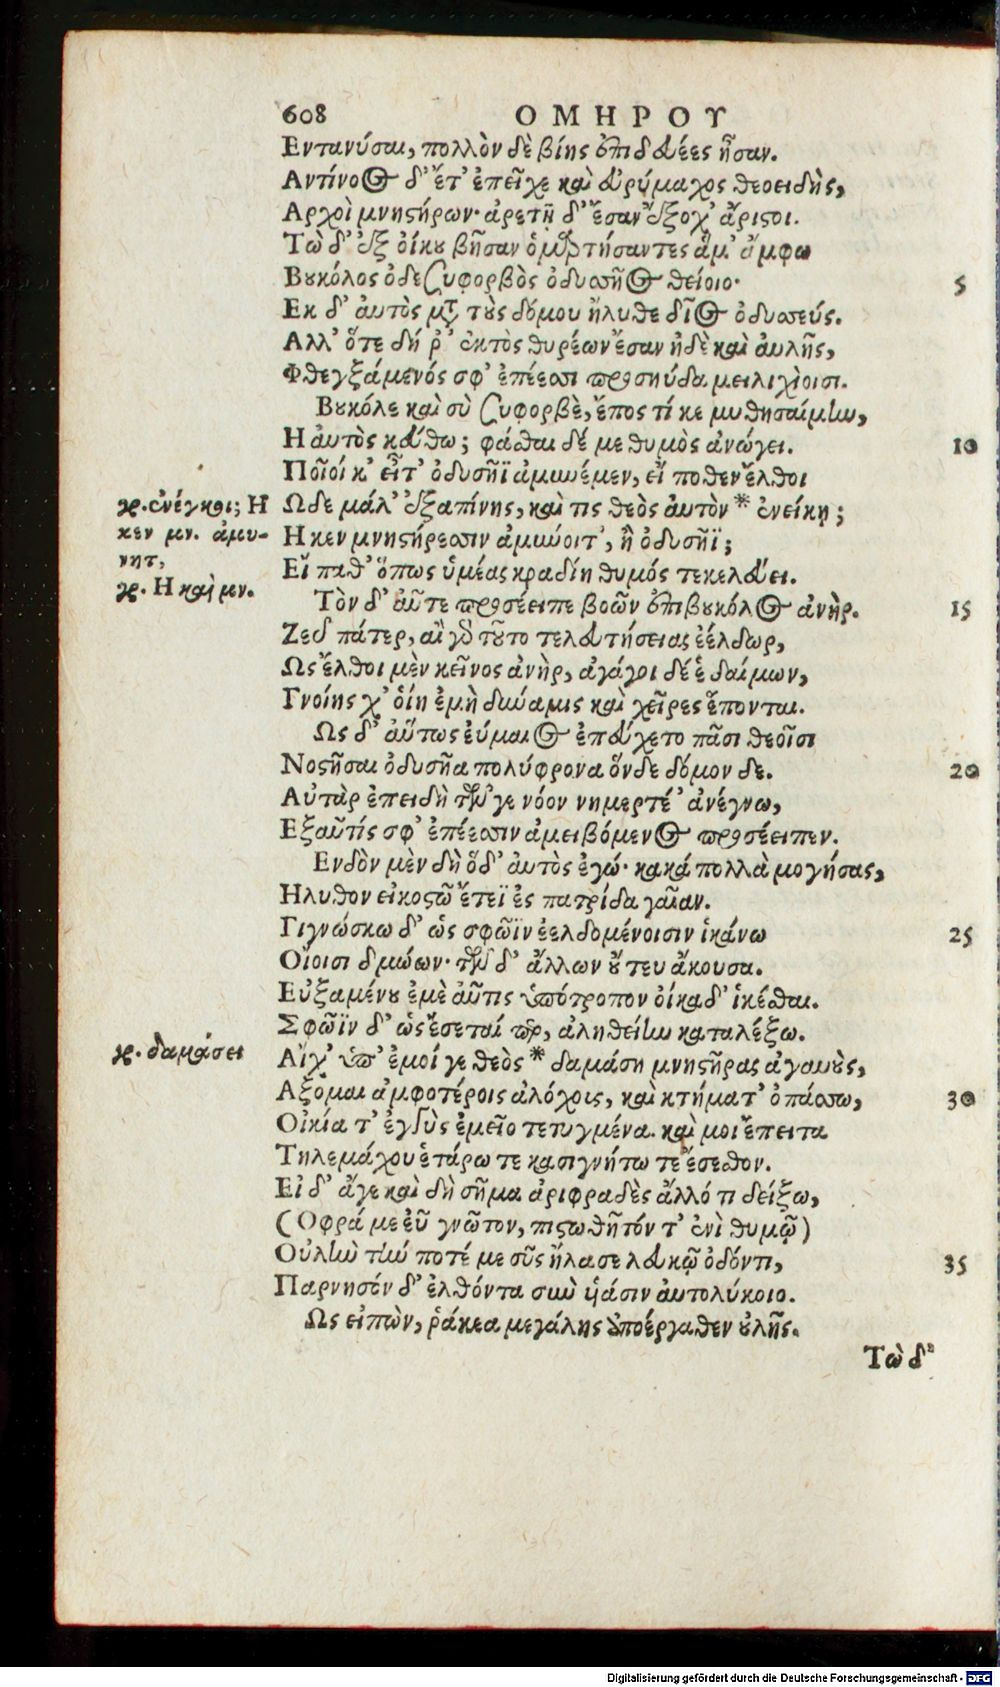 608 ΟΜΗΡΟΥ
Εντανύσαι, πολλὸν δὲ βίης ἐπιδευέες ἦσαν.
Αντίνοος δ' ἔτ' ἐπεῖχε καὶ εὐρύμαχος θεοειδὴς,
Αρχοὶ μνηστήρων· ἀρετῇ δ' ἔσαν ἔξοχ' ἄριστοι.
Τὼ δ' ἐξ οἴκου βῆσαν ὁμαρτήσαντες ἅμ' ἄμφω
Βουκόλος ὁδε συφορβὸς ὀδυσσῆος θείοιο· 5
Εκ δ' αὐτὸς μετὰ τοὺς δόμου ἤλυθε δῖος ὀδυσσεύς.
Αλλ' ὅτε δή ῥ' ἐκτὸς θυρέων ἔσαν ἠδὲ καὶ αὐλῆς,
Φθεγξάμενός σφ' ἐπέεσσι προσηύδα μειλιχίοισι.
Βουκόλε καὶ σὺ συφορβὲ, ἔπος τί κε μυθησαίμην,
Η αὐτὸς κεύθω; φάσθαι δέ με θυμὸς ἀνώγει. 10
Ποῖοί κ' εἶτ' ὀδυσῆϊ ἀμυνέμεν, εἴ ποθεν ἔλθοι
γρ. ἐνέγκοι; Η Ωδε μάλ' ἐξαπίνης, καὶ τις θεὸς αὐτὸν * ἐνείκῃ;
κεν μν. ἀμυ- Η κεν μνηστήρεσσιν ἀμύνοιτ', ἢ ὀδυσῆϊ;
νητ,
Εἴπαθ' ὅπως ὑμέας κραδίη θυμός τε κελεύει.
γρ. Η καὶ μν.
Τὸν δ' αὖτε προσέειπε βοῶν ἐπιβουκόλος ἀνὴρ. 15
Ζεῦ πάτερ, αἲ γὰρ τοῦτο τελευτήσειας ἐέλδωρ,
Ως ἔλθοι μὲν κεῖνος ἀνὴρ, ἀγάγοι δέ ἑ δαίμων,
Γνοίης χ' οἵη ἐμὴ δύναμις καὶ χεῖρες ἕπονται.
Ως δ' αὔτως εὔμαιος ἐπεύχετο πᾶσι θεοῖσι
Νοστῆσαι ὀδυσῆα πολύφρονα ὅνδε δόμον δε. 20
Αὐτὰρ ἐπειδὴ τῶν γε νόον νημερτέ' ἀνέγνω,
Εξαῦτίς σφ' ἐπέεσσιν ἀμειβόμενος προσέειπεν.
Ενδὸν μὲν δὴ ὅδ' αὐτὸς ἐγώ· κακά πολλὰ μογήσας,
Ηλυθον εἰκοστῶ ἔτεϊ ἐς πατρίδα γαῖαν.
Γιγνώσκω δ' ὡς σφῶϊν ἐελδομένοισιν ἱκάνω 25
Οἴοισι δμώων· τῶν δ' ἄλλων οὔ τευ ἄκουσα.
Εὐξαμένου ἐμὲ αὖτις ὑπότροπον οἴκαδ' ἱκέσθαι.
Σφῶϊν δ' ὡς ἔσεταί περ, ἀληθείην καταλέξω.
γρ. δαμάσει Αἴ χ' ὑπ' ἐμοί γε θεὸς * δαμάση μνηστῆρας ἀγαυοὺς,
Αξομαι ἀμφοτέροις ἀλόχοις, καὶ κτήματ' ὀπάσσω, 30
Οἰκία τ' ἐγγὺς ἐμεῖο τετυγμένα. καί μοι ἔπειτα
Τηλεμάχου ἑτάρω τε κασιγνήτω τε ἔσεσθον.
Εἰ δ' ἄγε καὶ δὴ σῆμα ἀριφραδὲς ἄλλό τι δείξω,
(Οφρά με εὖ γνῶτον, πιστωθῆτόν τ' ἐνὶ θυμῷ)
Οὐλὴν τήν ποτέ με σῦς ἤλασε λευκῷ ὀδόντι, 35
Παρνησόν δ' ἐλθόντα σὺν υἱάσιν αὐτολύκοιο.
Ως εἰπὼν, ῥάκεα μεγάλης ἀποέργαθεν οὐλῆς.
Τὼ δ'
Digitalisierung gefördert durch die Deutsche Forschungsgemeinschaft - DFG